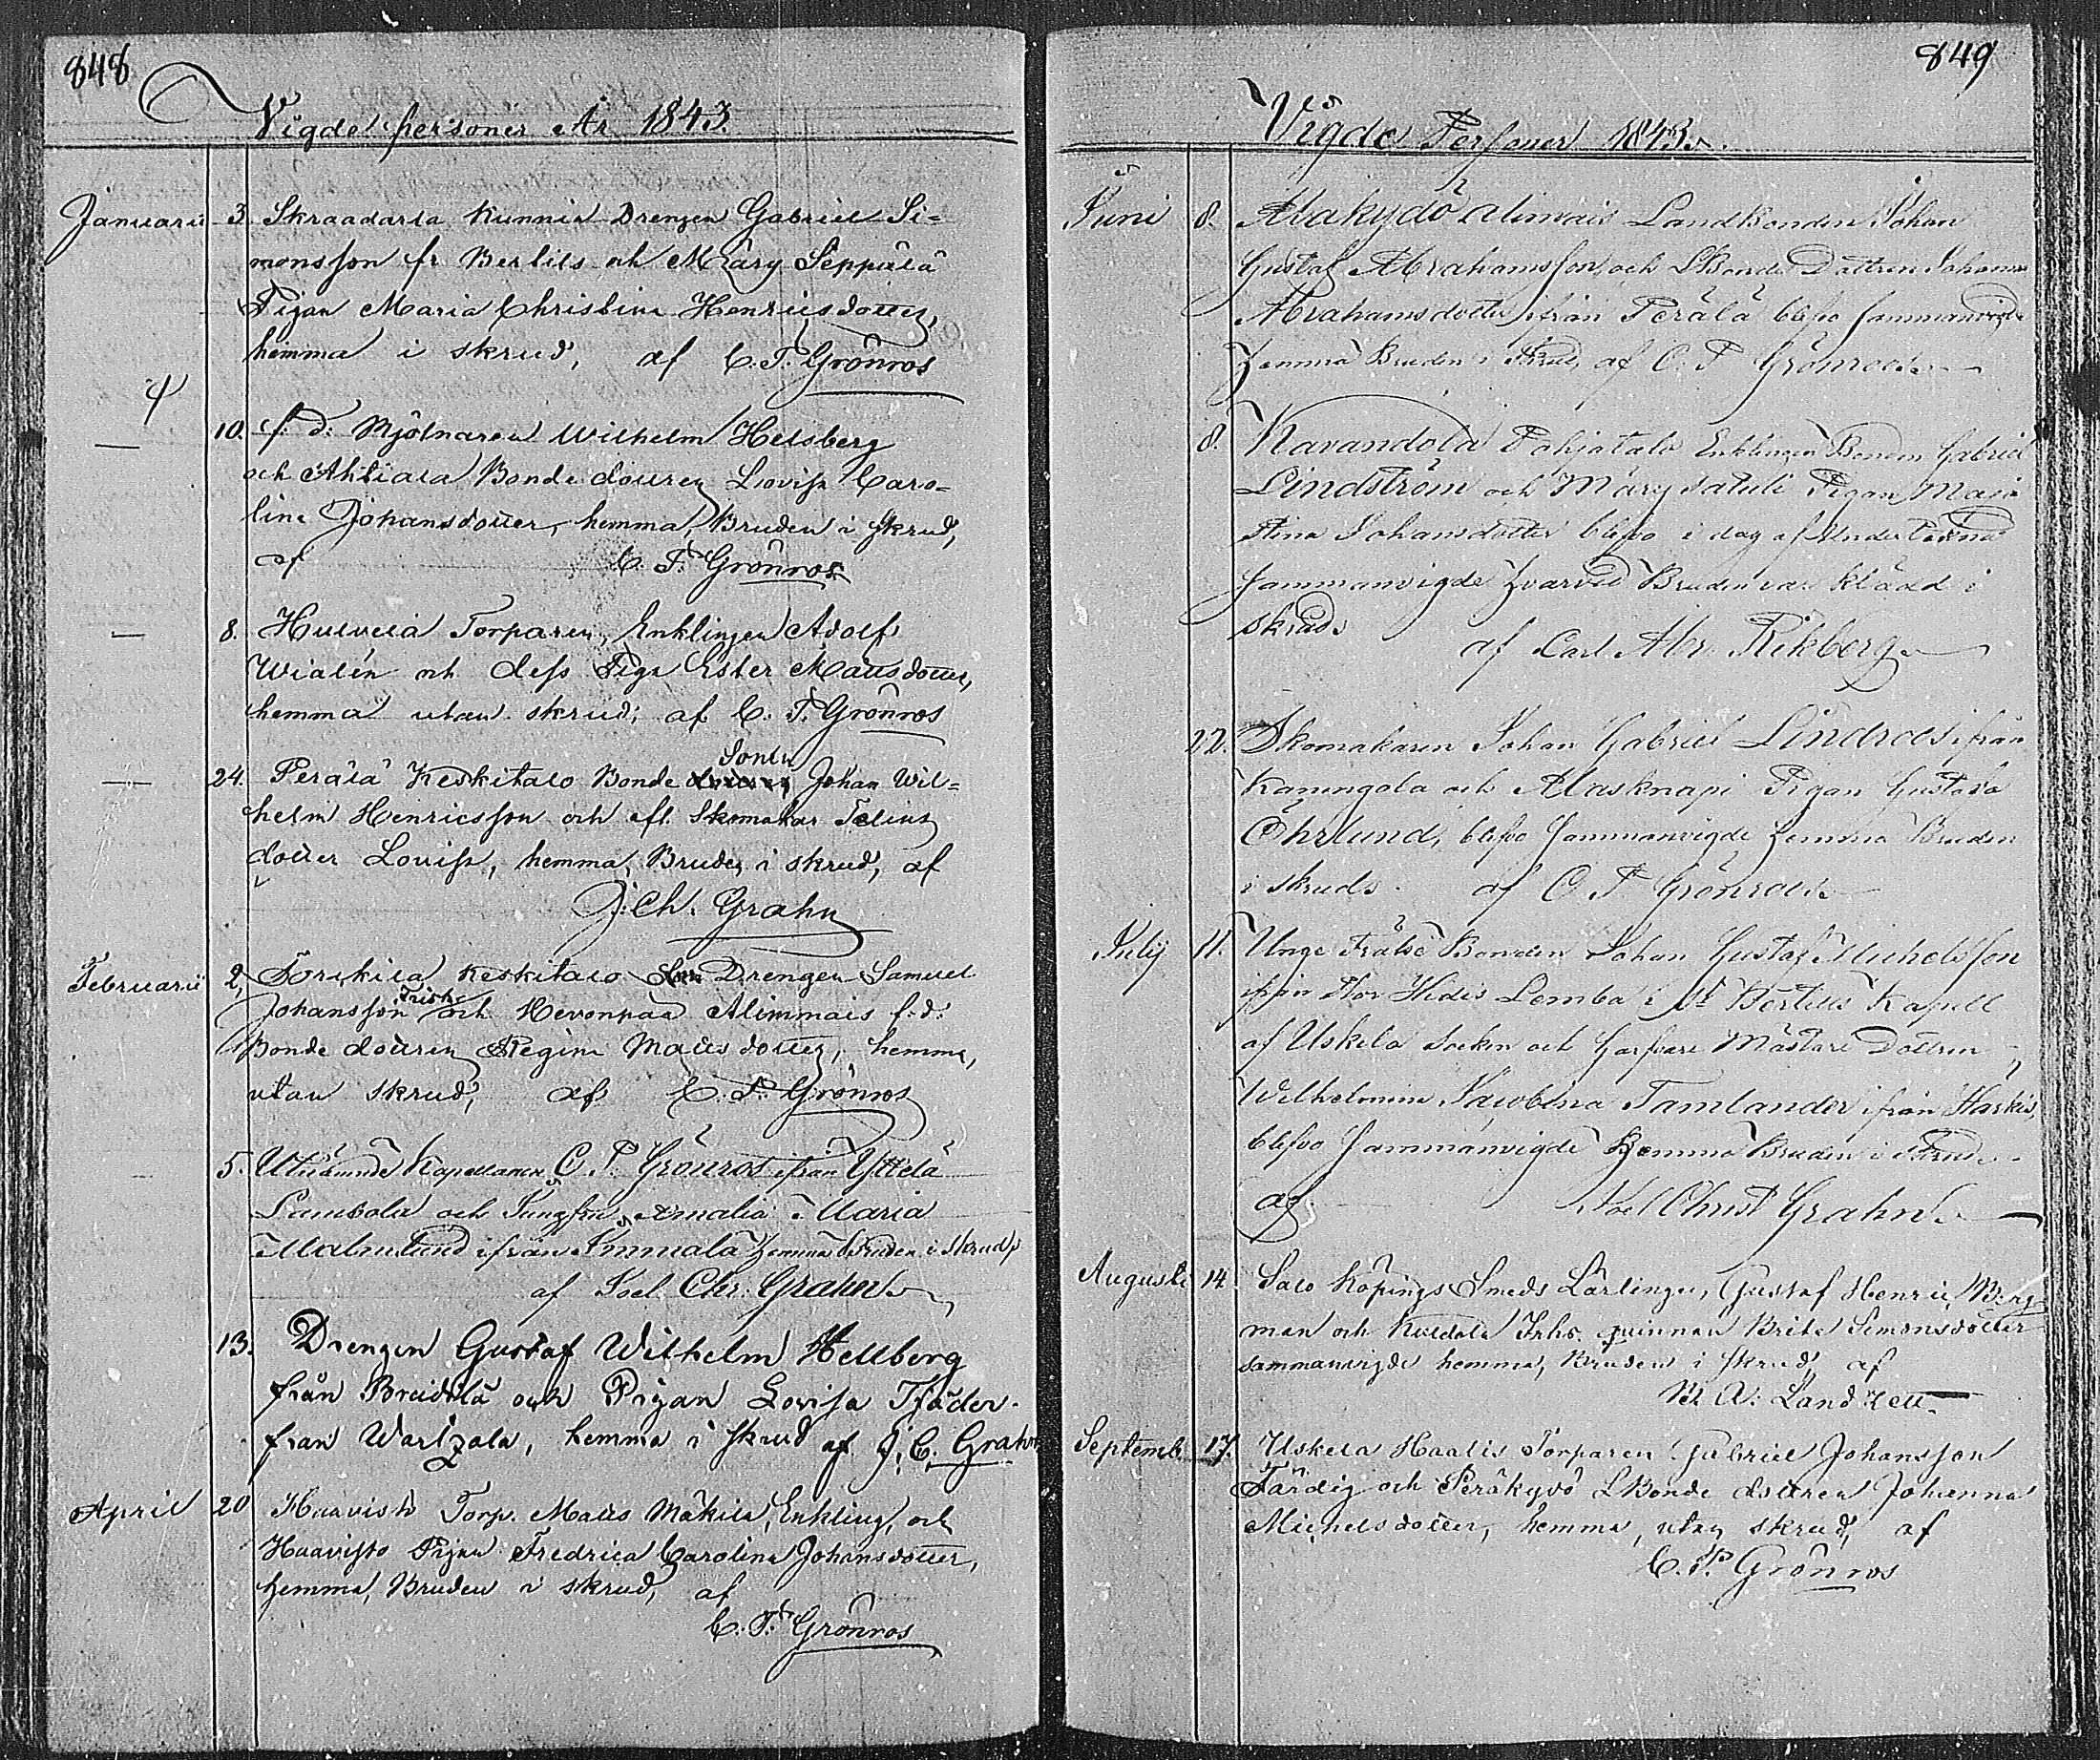 848
Vigde personer År 1843.
Januarii 3. Skraadarla Kunnia Drengen Gabriel Si=
monsson fr Bertils och Märy Seppälä
Pigan Maria Christina Henricsdotter,
hemma i skrud, af C. P. Grönros
4
— 10. f. d. Mjölnaren Wilhelm Helsberg
och Ahtiala Bonde dottren Lovisa Caro=
lina Johansdotter, hemma, Bruden i skrud,
af C. P. Grönros
— 8. Torparen, Enklingen Adolf
Wialén och dess Piga Ester Mattsdotter,
hemma utan skrud; af C. P. Grönros
— 24. Perälä Keskitalo Bonde Sonen Johan Wil=
helm Henricsson och afl. Skomakar Telins
dotter Lovisa, hemma, Bruden i skrud, af
J: Ch. Grahn
Februarii 2, Torikila Keskitalo Drengen Samuel
Johansson Frisk och Hevonpää Alimmais f. d.
Bonde dottren Regina Mattsdotter, hemma,
utan skrud, af C. P. Grönros
5. Kapellanen C. P. Grönros ifrån Yttelä
och Jungfru Amalia Maria
Malmlund ifrån hemma Bruden i skrud,
af Joel Chr: Grahn
13. Drengen Gustaf Wilhelm Hellberg
från Breidilä och Pigan Lovisa Tjäder
från Wartzala, hemma i skrud af J. C. Grahn
April 20 Haavisto Torp. Matts Mäkilä, Enkling, och
Haavisto Pigan Fredrica Carolina Johansdotter,
hemma, Bruden i skrud, af
C. P. Grönros
849
Vigde Personer 1843.
Juni 8. Alakydö Alimais Landbonden Johan
Gustaf Abrahamsson, och LBonde Dottren Johanna
Abrahamsdotter ifrån Perälä blefvo sammanvigde
hemma Bruden i skrud, af C. P. Grönroos
8. Karandola Pohjatalo Enklingen Bonden Gabriel
Lindström och Märy Satuli Pigan Maja
Stina Johansdotter blefvo i dag af Undertecknad
sammanvigde hvarvid Bruden var klädd i
skrud. af Carl Abr. Rikberg
22. Skomakaren Johan Gabriel Lindroos ifrån
Kaningola och Alasknapi Pigan Gustava
Öhrlund, blefvo sammanvigde hemma Bruden
i skrud. af C. P. Grönroos
Julij 11. Unge Frälse Bonden Johan Gustaf Michelsson
ifrån Stor Hidis Lemba i St Bertills Kapell
af Uskela Socken och Garfvare Mästare Dottren
Wilhelmina Jacobina Tamlander ifrån Härkis,
blefvo sammanvigde hemma Bruden i skrud
af Joel Christ Grahn
Augusti 14. Salo Köpings Smeds Lärlingen, Gustaf Henric Berg
man och Kuldala Inhs. qvinnan Brita Simonsdotter
sammanvigde hemma, Bruden i skrud, af
A. Landzett
Septemb. 17. Uskela Haalis Torparen Gabriel Johansson
Färdig och Peräkyrö LBonde dottren Johanna
Michelsdotter, hemma, utan skrud, af
C. P. Grönros